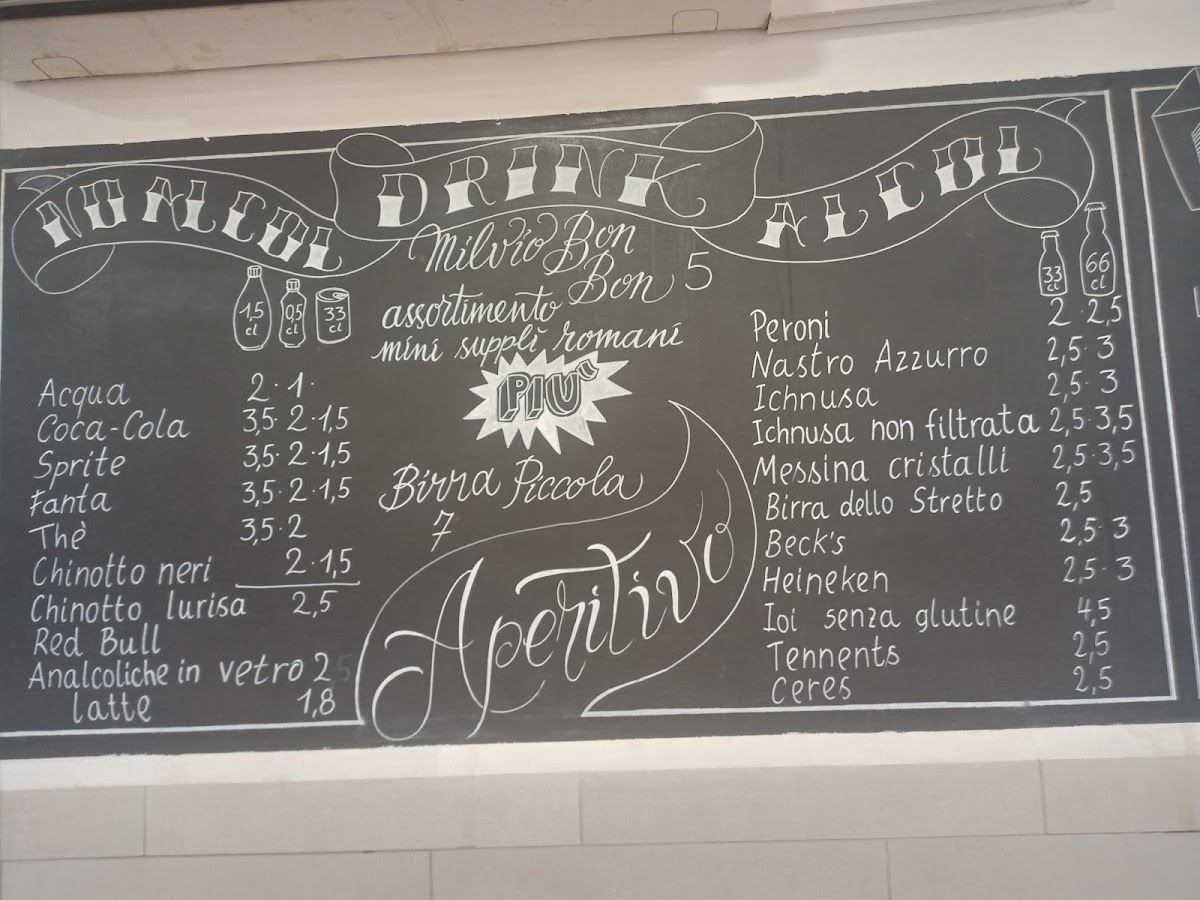 NO ALCOL
DRINK
ALCOL
1,5 cl
0,5 cl
33 cl
Acqua 2 · 1 ·
Coca-Cola 3,5 · 2 · 1,5
Sprite 3,5 · 2 · 1,5
Fanta 3,5 · 2 · 1,5
Thè 3,5 · 2
Chinotto neri 2 · 1,5
Chinotto lurisa 2,5
Red Bull
Analcoliche in vetro 2
latte 1,8
Milvio Bon
Bon 5
assortimento
mini supplì romani
PIU'
Birra Piccola
7
Aperitivo
33 cl
66 cl
Peroni 2 · 2,5
Nastro Azzurro 2,5 · 3
Ichnusa 2,5 · 3
Ichnusa non filtrata 2,5 · 3,5
Messina cristalli 2,5 · 3,5
Birra dello Stretto 2,5
Beck's 2,5 · 3
Heineken 2,5 · 3
Ioi senza glutine 4,5
Tennents 2,5
Ceres 2,5